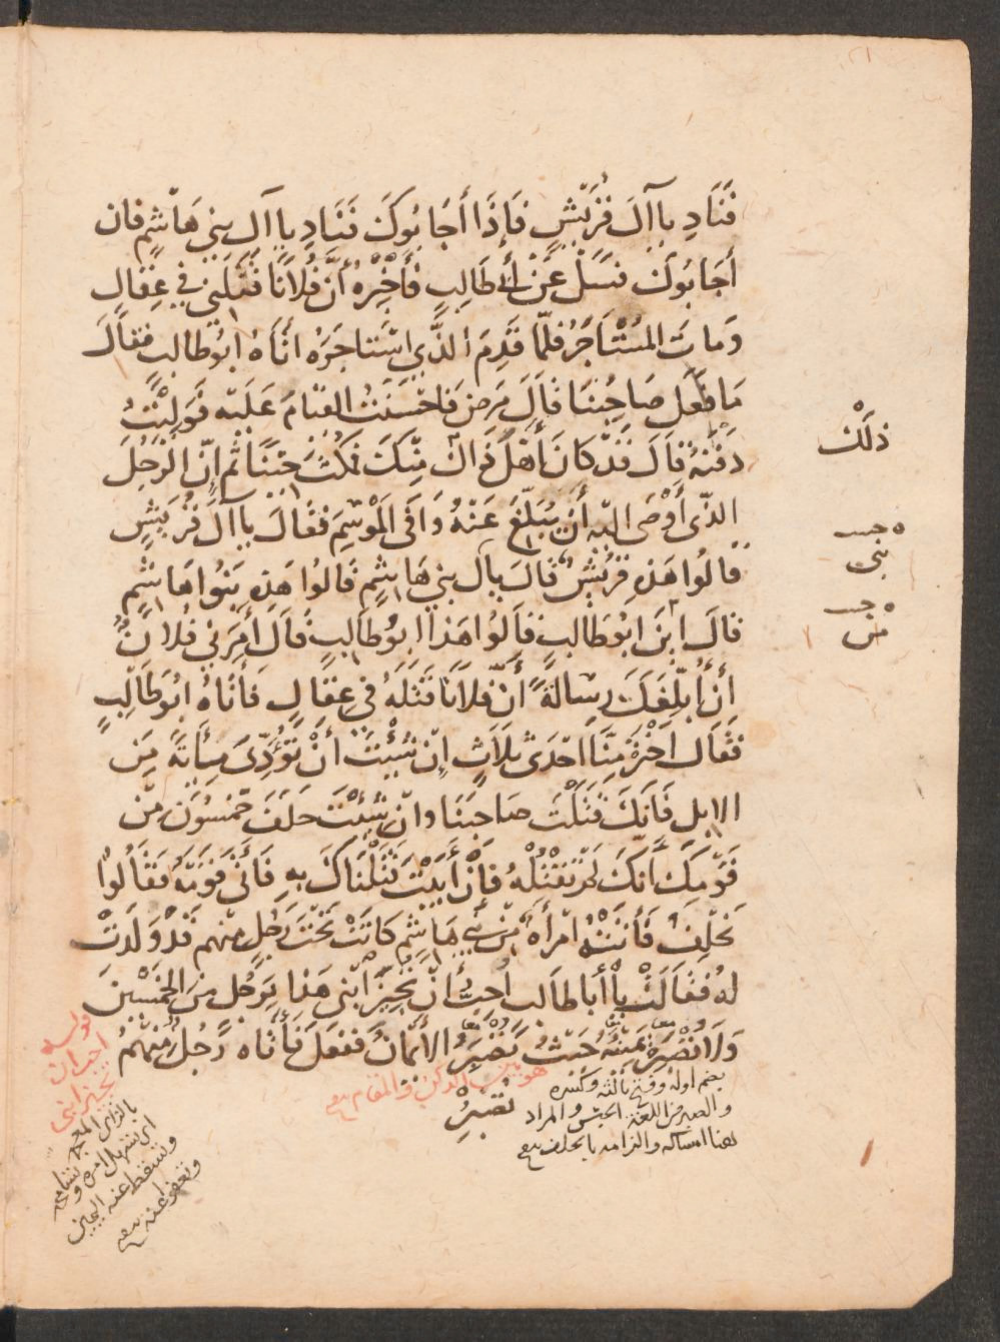 فَنَادِ يا آلَ قُرَيْشٍ فَإِذَا أَجَابُوكَ فَنَادِ يا آل بني هَاشِمٍ فان
أَجَابُوكَ فسَلْ عَنْ أَبِي طَالِبٍ فَأَخْبِرْهُ أَنَّ فُلَانًا قَتَلَنِي في عِقَالٍ
وَمَاتَ المُسْتَأجَرُ فلَمَّا قَدِمَ الذَّي اسْتَاجَرَه اتَاهُ ابُوطالب فقالَ
مَا فَعَلَ صَاحِبُنَا قَالَ مَرِضَ فَاحْسَنْتُ القيَامَ عَلَيْه فَوَلِيْتُ
دَفنَهُ قالَ قَدْ كانَ أَهْلَ ذاكَ مِنْكَ فمَكُثَ حِيْنًا ثُم إنّ الرَجُلَ
الذّي أَوْصَى اليْه أَنْ يُبَلِّغَ عَنْهُ وَافَى المَوْسِمَ فقَالَ يا آلَ قُرَيْشٍ
قالُوا هَذِه قُرَيْشٌ قالَ يا آل بني هَاشِمٍ قَالُوا هَذِه بَنُوا هَاشِمٍ
قالَ ايْنَ ابُوطَالبٍ قَالُوا هَذَا ابوُطَالِبٍ قَالَ أَمَرَني فُلانٌ
أَنْ أُبَلِّغَكَ رِسَالَةً أَنّ فلانًا قَتَلَهُ في عِقَالٍ فأتَاهُ ابُوطَالِبٍ
فقَال اخْتَرْ مِنَّا احْدَى ثلاثٍ إنْ شِئْتَ أنْ تؤَدِّىَ مِائَةً مِن
الابل فَانَكَ قَتَلْتَ صَاحِبَنَا وانْ شِئْتَ حَلَفَ خَمْسُونَ مِنْ
قَوْمِكَ أنّكَ لَمْ تَقْتُلْهُ فإنْ أَبَيْتَ قَتَلْنَاكَ بِهِ فَأتَى قَومَهُ فقَالُوا
نَحْلِفُ فَأتَتْهُ امْرأةٌ مِنْ بَنِي هَاشِمٍ كَانَتْ تَحْتَ رَجُلٍ منْهم قَدْ وَلَدَتْ
لهُ فقَالَتْ يا أبا طالب أُحِبُّ أنْ تُجِيْزَ ابْني هَذا برَجُلٍ مِنَ الخَمْسِينَ
وَلَا تَصْبِرْ يَمِيْنَهُ حَيْثُ تُصْبَرُ الأَيْمَانُ ففعَلَ فأَتَاه رَجُلٌ مِنْهُمْ
ذلك
بني
من
قوله
احب ان
تجيز ابني
بالزاي المعجمة
وتسقط عنه اليمين
وتعفو عنه
هو بين الركن والمقام
بضم اوله وفتح ثالثه وكسره
والصبر في اللغة الحبس والمراد
هنا امساكه والزامه بالحلف
تصبرُ